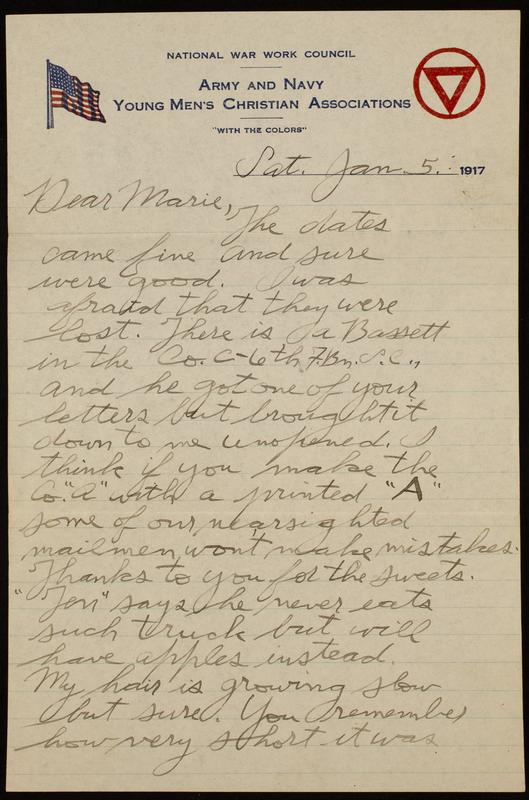 NATIONAL WAR WORK COUNCIL
ARMY AND NAVY
YOUNG MEN'S CHRISTIAN ASSOCIATIONS
"WITH THE COLORS"
Sat. Jan 5. 1917
Dear Marie,
The dates
came fine and sure
were good. I was
afraid that they were
lost. There is a Bassett
in the Co. C-6th F.Bn. S.C.,
and he got one of your
letters but brought it
down to me unopened. I
think if you make the
Co. "A" with a printed "A"
some of our nearsighted
mailmen won't make mistakes.
Thanks to you for the sweets.
says he never eats
such truck but will
have apples instead.
My hair is growing slow
but sure. You remember
how very short it was